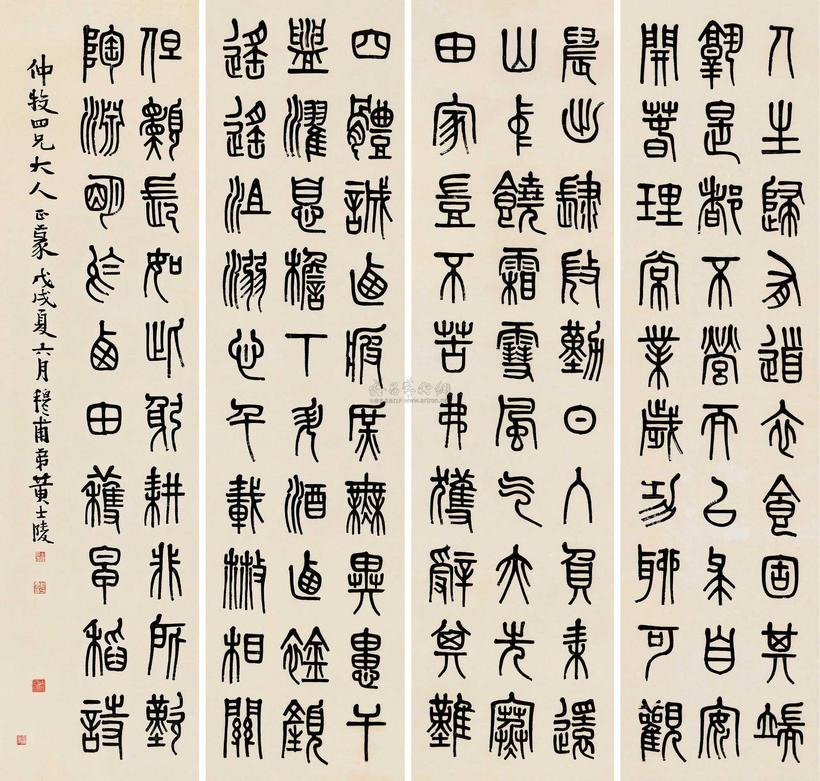 人生歸有道衣食固其端
孰是都不營而以求自安
開春理常業歲功聊可觀
晨出肆微勤日入負耒還
山中饒霜雪風气亦先寒
田家豈不苦弗獲辭其難
四體誠迺疲庶無異患干
盥濯息檐下斗酒迺襟顏
遙遙沮溺心千載散相關
但願長如此躬耕非所歎
陶淵明於西田穫早稻詩
仲牧四兄大人正篆戊戌夏六月穆甫弟黃士陵